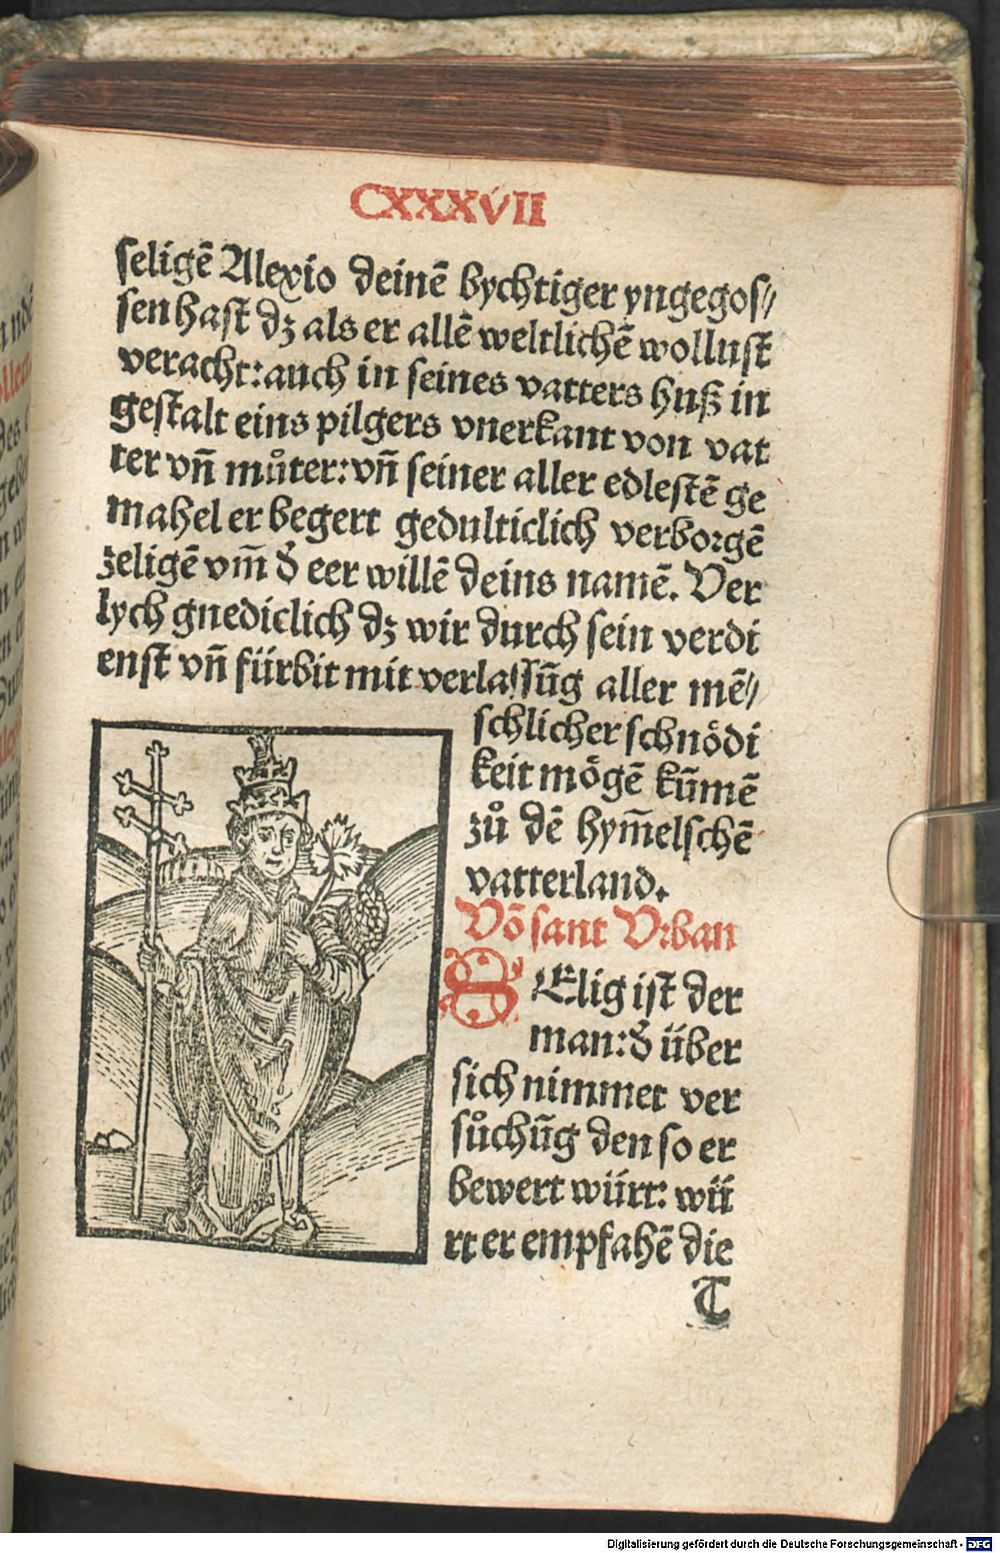 CXXXVII
seligē Alexio deinē bychtiger yngegos//
sen hast dz als er allē weltlichē wollust
veracht: auch in seines vatters huß in
gestalt eins pilgers vnerkant von vat
ter vñ můter: vñ seiner aller edlestē ge
mahel er begert gedulticlich verborgē
zeligē vm̄ d̄ eer willē deins namē. Ver
lych gnediclich dz wir durch sein verdi
enst vñ fürbit mit verlassūg aller mē//
schlicher schnödi
keit mögē kūmē
zů dē hym̄elschē
vatterland.
Vō sant Vrban
SElig ist der
man: d̄ über
sich nimmet ver
sůchūg den so er
bewert würt: wü
rt er empfahē die
T
Digitalisierung gefördert durch die Deutsche Forschungsgemeinschaft - DFG